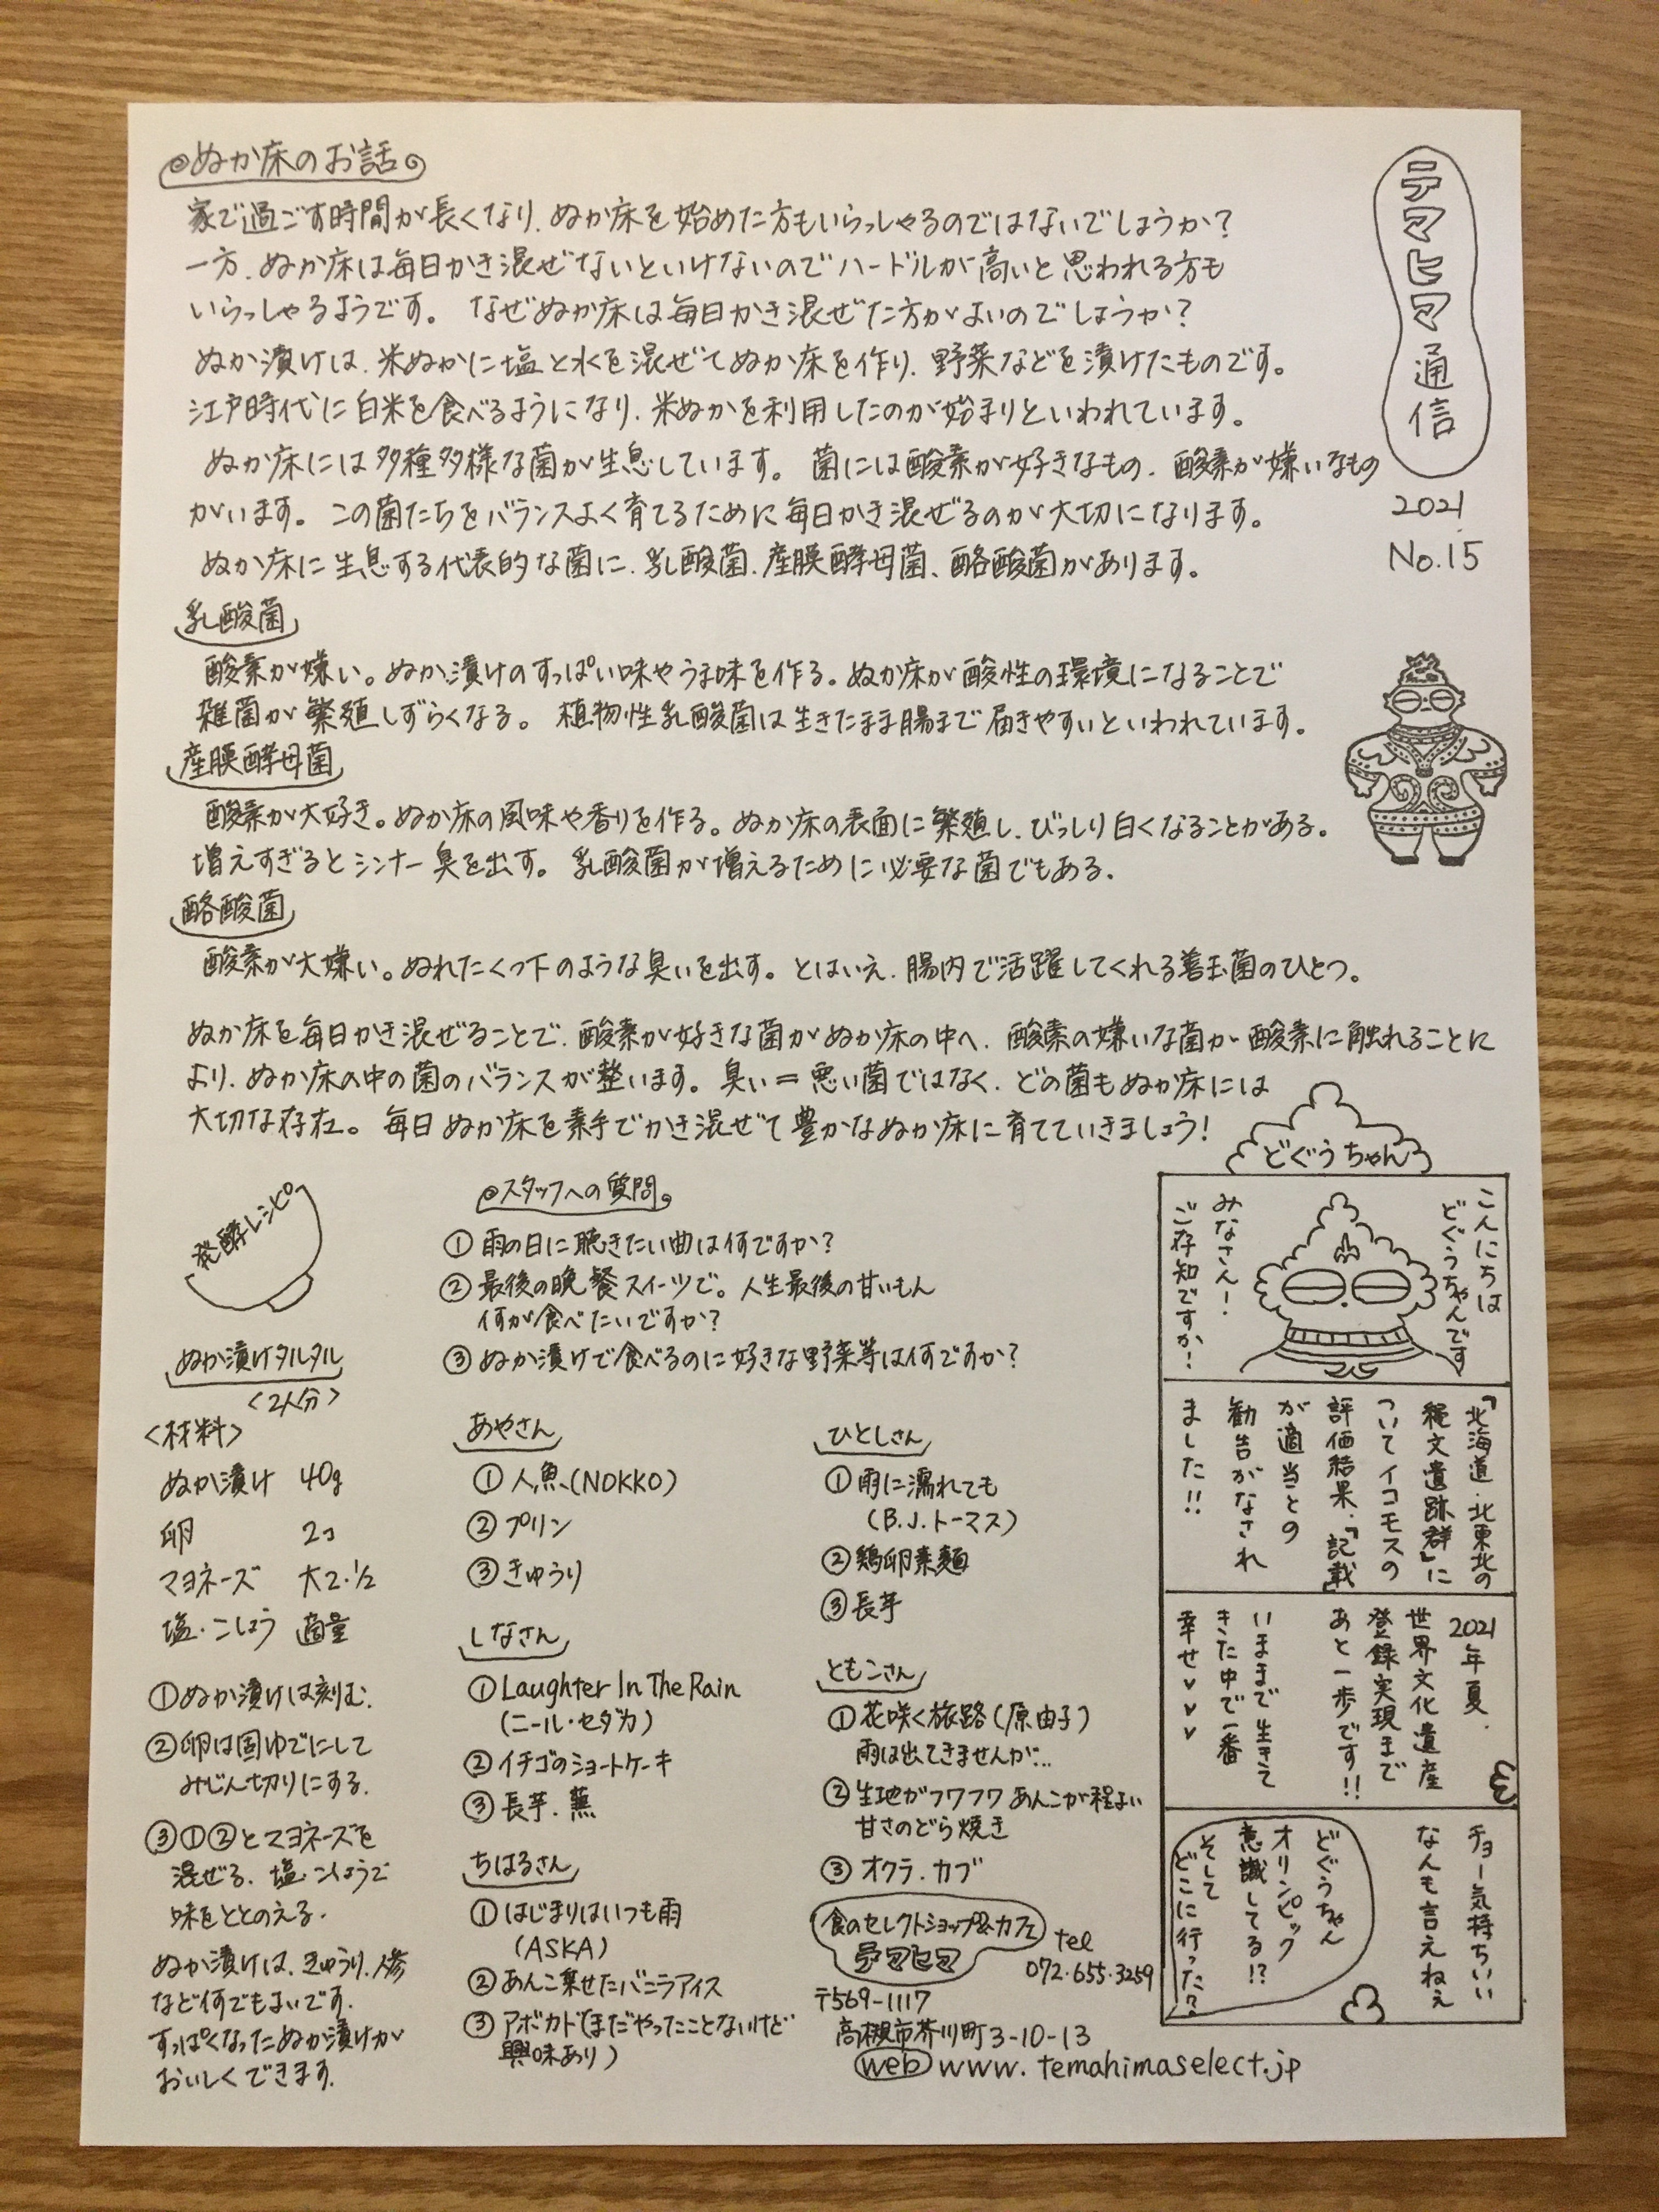 テマヒマ通信
2021
No.15
ぬか床のお話
家で過ごす時間が長くなり、ぬか床を始めた方もいらっしゃるのではないでしょうか？
一方、ぬか床は毎日かき混ぜないといけないのでハードルが高いと思われる方も
いらっしゃるようです。 なぜぬか床は毎日かき混ぜた方がよいのでしょうか？
ぬか漬けは、米ぬかに塩と水を混ぜてぬか床を作り、野菜などを漬けたものです。
江戸時代に白米を食べるようになり、米ぬかを利用したのが始まりといわれています。
ぬか床には多種多様な菌が生息しています。 菌には酸素が好きなもの、酸素が嫌いなもの
がいます。 この菌たちをバランスよく育てるために毎日かき混ぜるのが大切になります。
ぬか床に生息する代表的な菌に、乳酸菌、産膜酵母菌、酪酸菌があります。
乳酸菌
酸素が嫌い。ぬか漬けのすっぱい味やうま味を作る。ぬか床が酸性の環境になることで
雑菌が繁殖しずらくなる。 植物性乳酸菌は生きたまま腸まで届きやすいといわれています。
産膜酵母菌
酸素が大好き。ぬか床の風味や香りを作る。ぬか床の表面に繁殖し、びっしり白くなることがある。
増えすぎるとシンナー臭を出す。 乳酸菌が増えるために必要な菌でもある。
酪酸菌
酸素が大嫌い。ぬれたくつ下のような臭いを出す。とはいえ、腸内で活躍してくれる善玉菌のひとつ。
ぬか床を毎日かき混ぜることで、酸素が好きな菌がぬか床の中へ、酸素の嫌いな菌が酸素に触れることに
より、ぬか床の中の菌のバランスが整います。 臭い＝悪い菌ではなく、どの菌もぬか床には
大切な存在。 毎日ぬか床を素手でかき混ぜて豊かなぬか床に育てていきましょう！
発酵レシピ
ぬか漬けタルタル
<2人分>
<材料>
ぬか漬け 40g
卵 2コ
マヨネーズ 大2・1/2
塩・こしょう 適量
①ぬか漬けは刻む。
②卵は固ゆでにして
みじん切りにする。
③①②とマヨネーズを
混ぜる。塩・こしょうで
味をととのえる。
ぬか漬けは、きゅうり、人参
など何でもよいです。
すっぱくなったぬか漬けが
おいしくできます。
スタッフへの質問
①雨の日に聴きたい曲は何ですか？
②最後の晩餐スイーツで。人生最後の甘いもん
何が食べたいですか？
③ぬか漬けで食べるのに好きな野菜等は何ですか？
あやさん
①人魚(NOKKO)
②プリン
③きゅうり
しなさん
①Laughter In The Rain
(ニール・セダカ)
②イチゴのショートケーキ
③長芋、蕪
ちはるさん
①はじまりはいつも雨
(ASKA)
②あんこ乗せたバニラアイス
③アボカド(まだやったことないけど
興味あり)
ひとしさん
①雨に濡れても
(B.J.トーマス)
②鶏卵素麺
③長芋
ともこさん
①花咲く旅路(原由子)
雨は出てきませんが…
②生地がフワフワ あんこが程よい
甘さのどら焼き
③オクラ、カブ
食のセレクトショップ&カフェ
テマヒマ
tel
072.655.3259
〒569-1117
高槻市芥川町3-10-13
web www.temahimaselect.jp
どぐうちゃん
こんにちは
どぐうちゃんです
みなさん！
ご存知ですか！
『北海道・北東北の
縄文遺跡群』に
ついてイコモスの
評価結果、『記載』
が適当との
勧告がなされ
ました!!
2021年夏、
世界文化遺産
登録実現まで
あと一歩です!!
いままで生きて
きた中で一番
幸せ♥♥♥
チョー気持ちいい
なんも言えねぇ
どぐうちゃん
オリンピック
意識してる!?
そして
どこに行った?